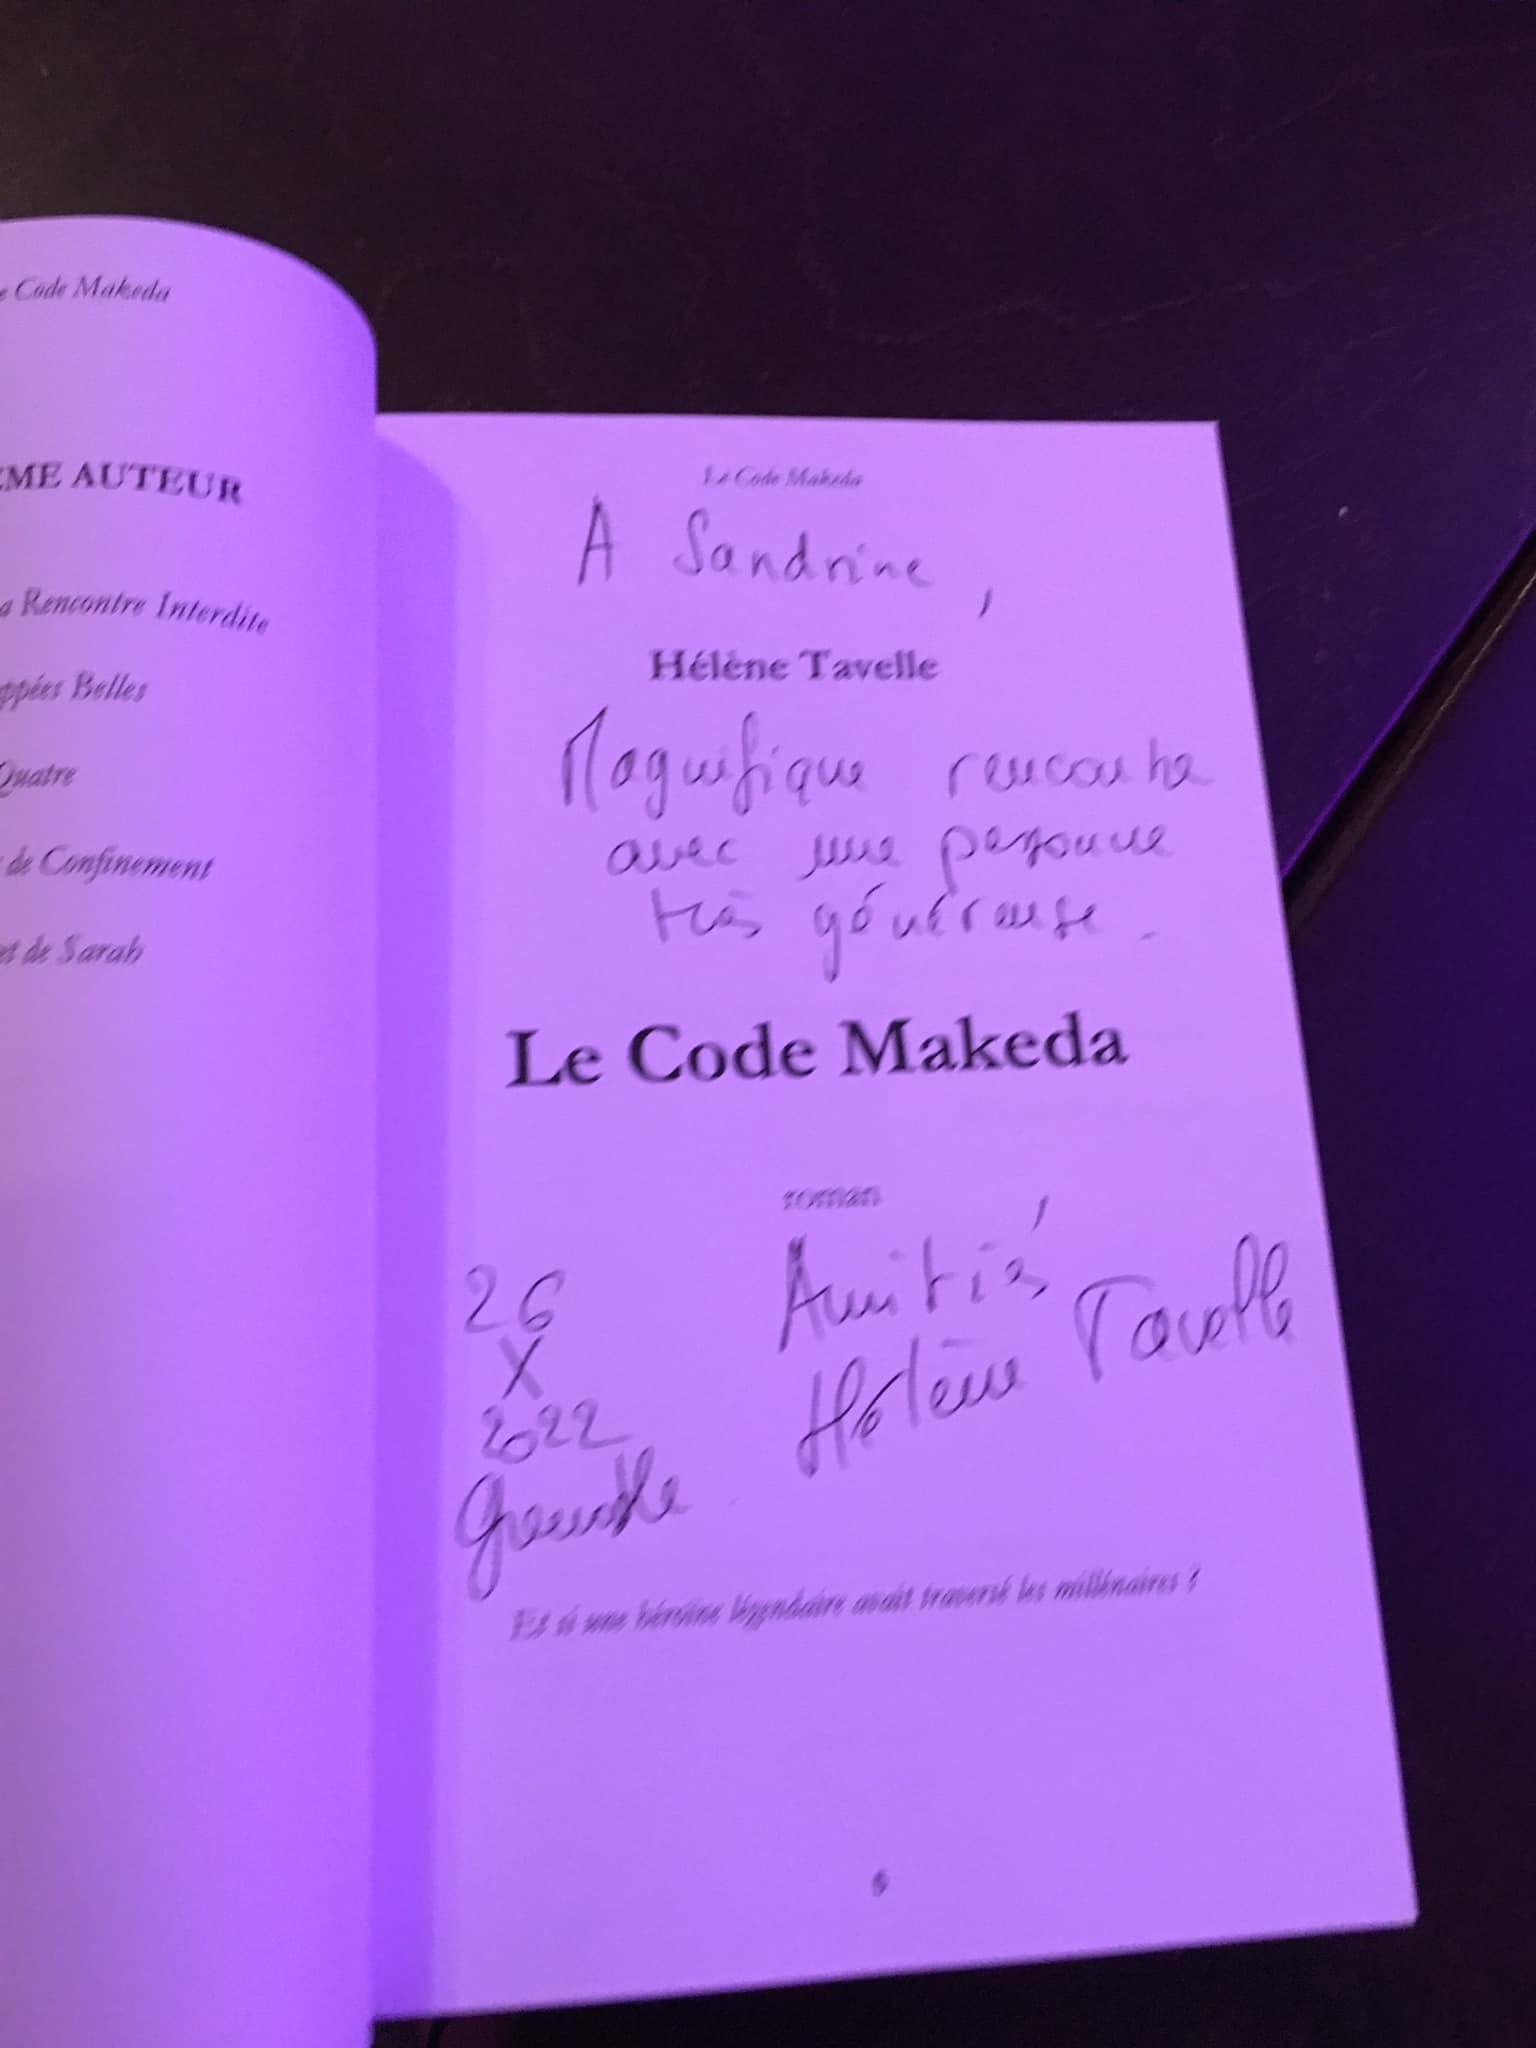 Code Makeda
AUTEUR
Rencontre Interdite
Belles
Quatre
de Confinement
de Sarah
Le Code Makeda
A Sandrine,
Hélène Tavelle
Magnifique rencontre
avec une personne
très généreuse.
Le Code Makeda
roman
Amitiés,
Hélène Tavelle
26
X
2022
Grenoble
Et si une héroïne légendaire avait traversé les millénaires ?